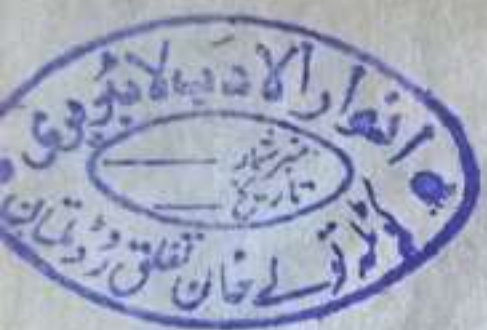 انوار الادب لائبریری
نمبر شمار
تاریخ
کوٹلہ تولے خان تغلق روڈ ملتان